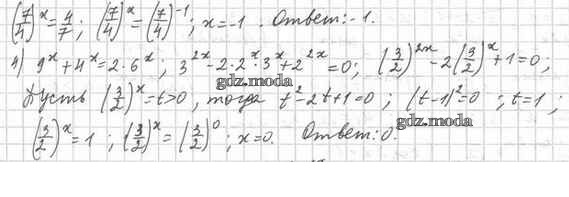 (7/4)^x = 4/7; (7/4)^x = (7/4)^-1; x = -1. Ответ: -1.
4) 9^x + 4^x = 2·6^x; 3^2x - 2·2^x·3^x + 2^2x = 0; (3/2)^2x - 2(3/2)^x + 1 = 0;
gdz.moda
Пусть (3/2)^x = t > 0, тогда t^2 - 2t + 1 = 0; (t-1)^2 = 0; t = 1;
gdz.moda
(3/2)^x = 1; (3/2)^x = (3/2)^0; x = 0. Ответ: 0.
gdz.moda